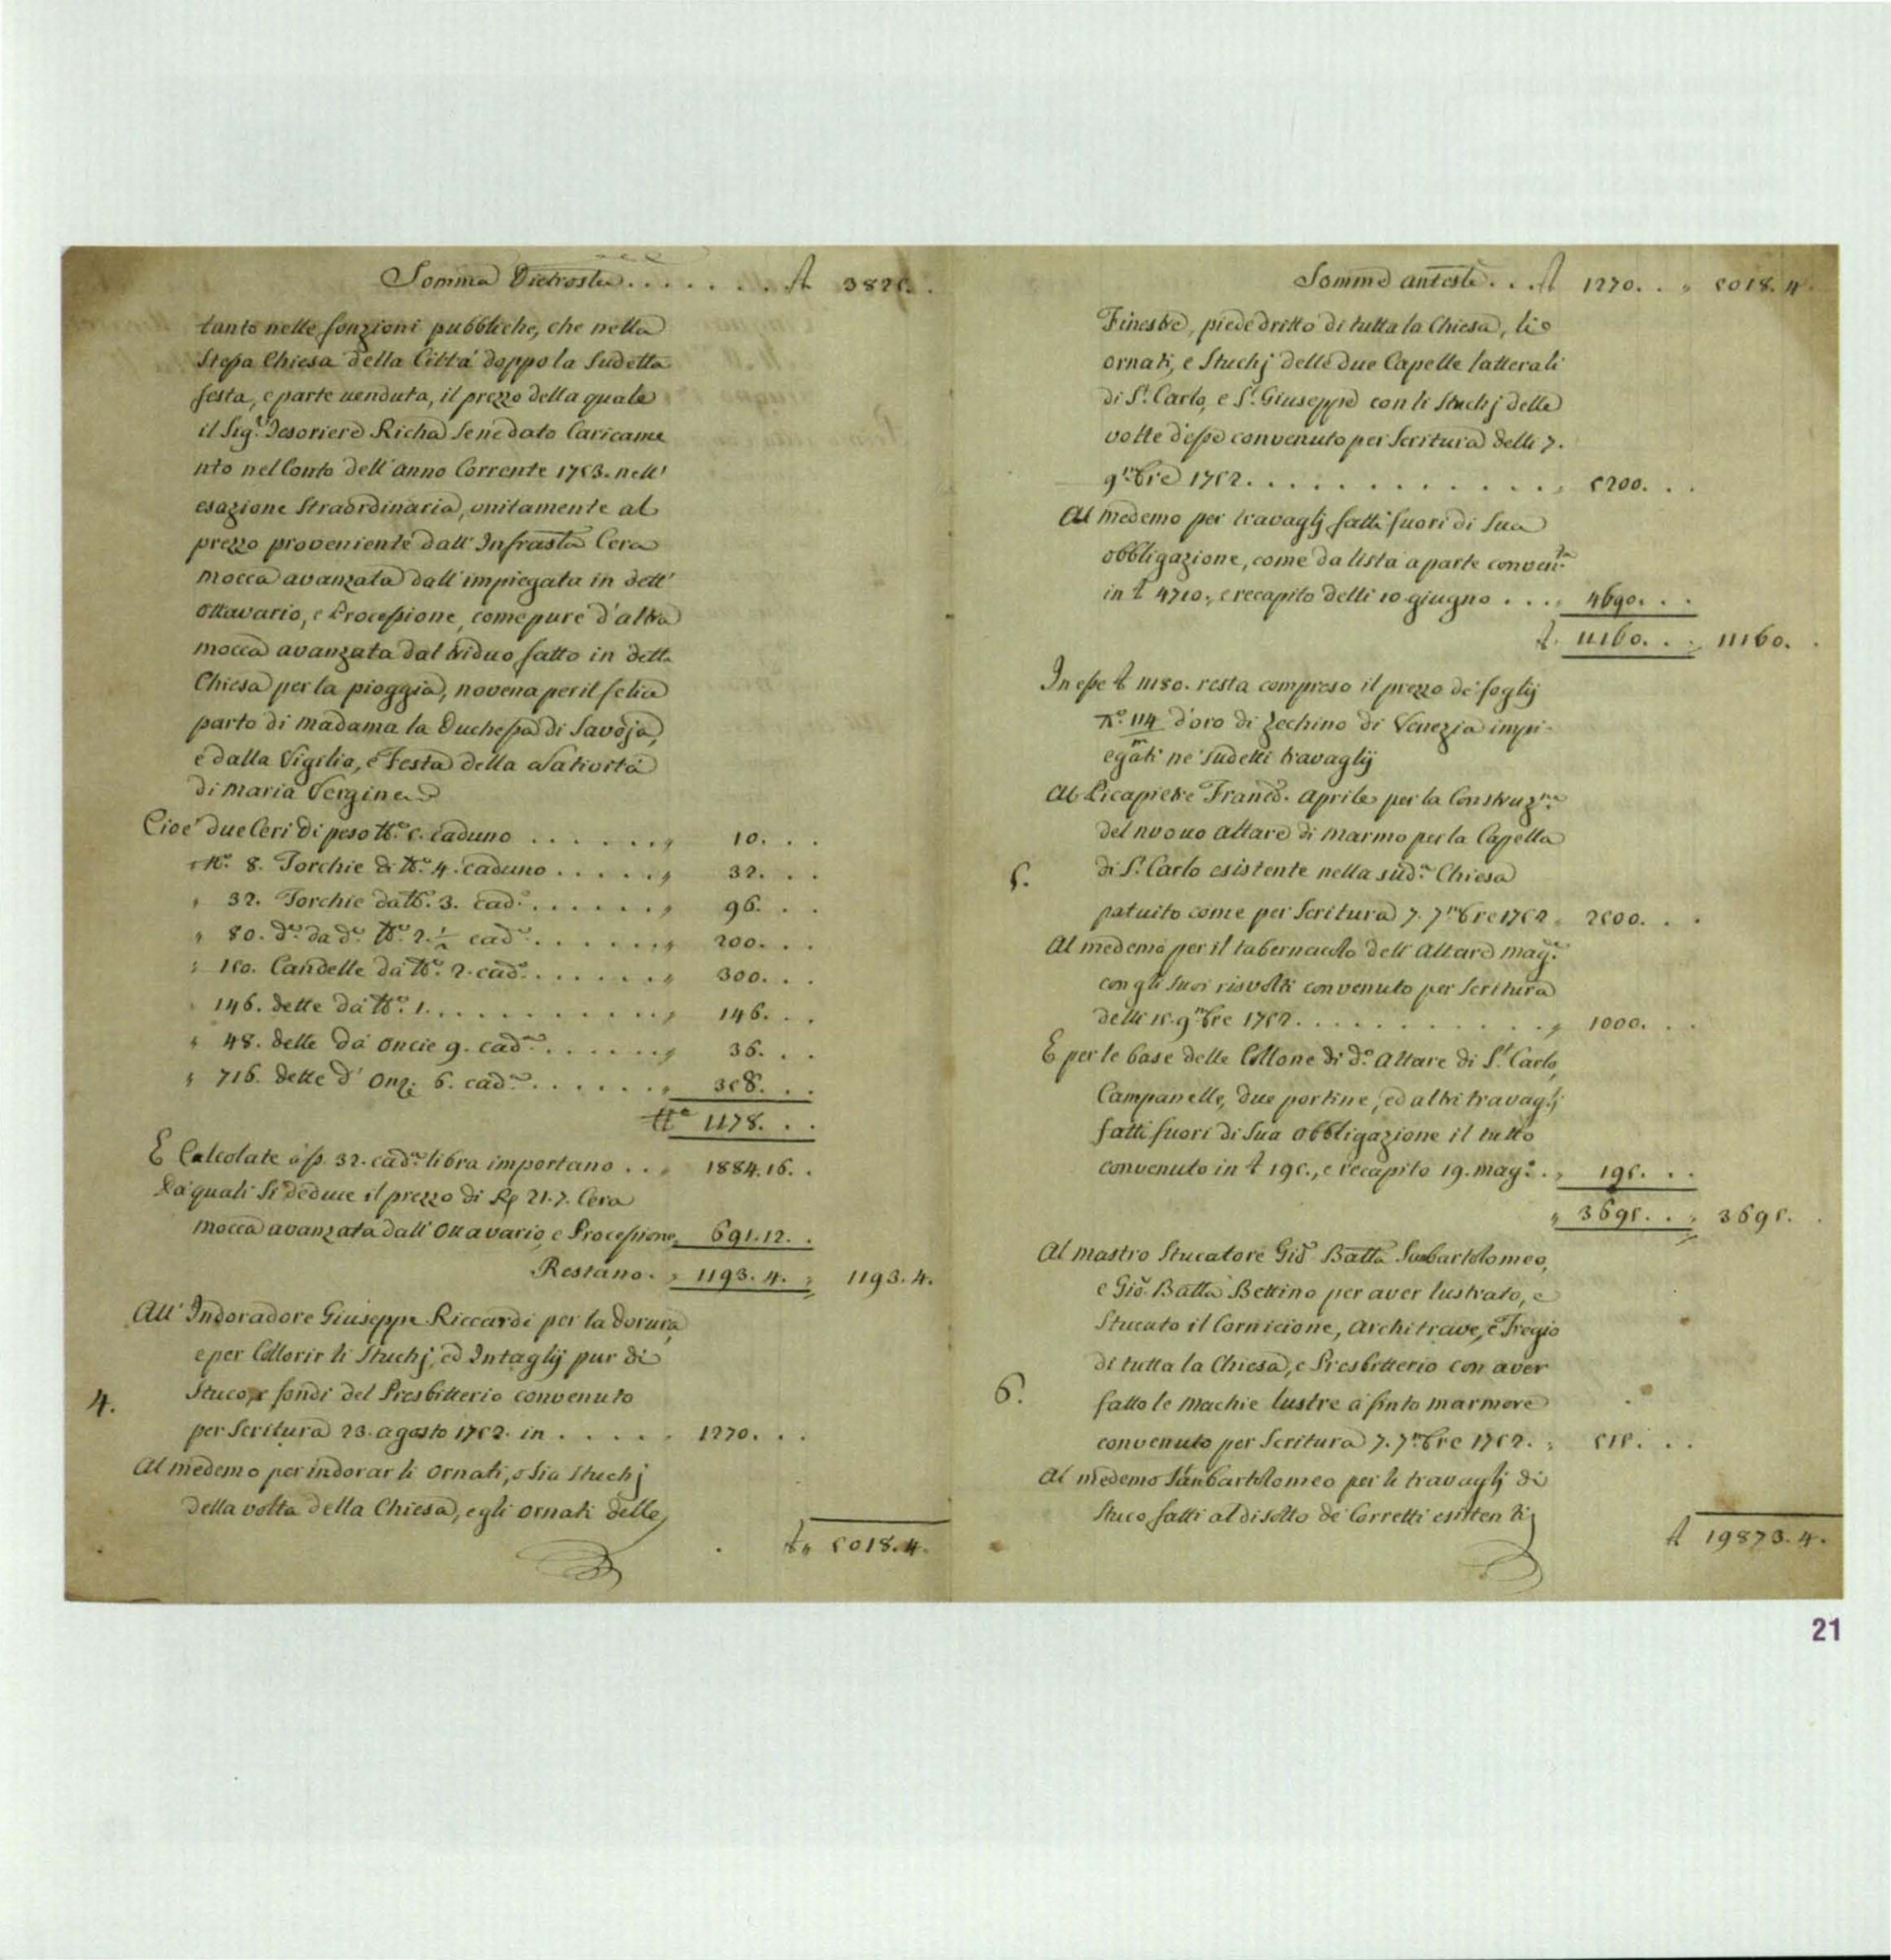 Somma Dietroste . . . . . . . . £ 3825. .
tanto nelle fonzioni pubbliche, che nella
Stessa Chiesa della Città doppo la Sudetta
festa, e parte venduta, il prezzo della quale
il Sig.r Tesoriere Richa se ne dato Caricame
nto nel Conto dell'anno Corrente 1753. nell'
esazione Straordinaria, unitamente al
prezzo proveniente dall'Infrasta Cera
mocca avanzata dall'impiegata in dett'
ottavario, e Processione, come pure d'altra
mocca avanzata dal triduo fatto in detta
Chiesa per la pioggia, novena per il felice
parto di madama la Duchessa di Savoja,
e dalla Vigilia, e Festa della Natività
di maria Vergine
Cioè due Ceri di peso lb.e 5. caduno . . . . . . . „ 10. . .
N.o 8. Torchie di lb.e 4. caduno . . . . . . „ 32. . .
„ 32. Torchie da lb.e 3. cad.a . . . . . . . „ 96. . .
„ 80. d.e da d.e lb.e 2. ½ cad.a . . . . . . . „ 200. . .
„ 150. Candelle da lb.e 2. cad.a . . . . . . . „ 300. . .
„ 146. dette da lb.a 1. . . . . . . . . . . . „ 146. . .
„ 48. dette da oncie 9. cad.a . . . . . . „ 36. . .
„ 716. dette d'onz.e 6. cad.a . . . . . . . „ 358. . .
lb.e 1178. . .
E Calcolate à s. 32. cad.a libra importano . . . „ 1884. 16. .
Da quali si deduce il prezzo di Rp 21. 7. Cera
mocca avanzata dall'Ottavario, e Processione „ 691. 12. .
Restano . „ 1193. 4. „ 1193. 4.
All'Indoradore Giuseppe Riccardi per la dorura,
e per Collorir li Stuchj, ed Intaglij pur di
4. Stuco, e fondi del Presbitterio convenuto
per Scritura 23. agosto 1752. in . . . . . . 1270. . .
Al medemo per indorar li ornati, o sia stuchj
della volta della Chiesa, e gli ornati delle
£ „ 5018. 4.
Somme anteste . . . £ 1270. . „ 5018. 4.
Finestre, piededritto di tutta la Chiesa, li
ornati, e Stuchj delle due Capelle latterali
di S.t Carlo, e S.t Giuseppe con li stuchj delle
volte d'esse convenuto per Scritura delli 7.
9.mbre 1752. . . . . . . . . . . . . . „ 5200. . .
Al medemo per travaglj fatti fuori di sua
obbligazione, come da lista a parte conven.ta
in £ 4710., e recapito delli 10 giugno . . . „ 4690. . .
£. 11160. . „ 11160. .
In esse £ 11180. resta compreso il prezzo de' foglij
N.o 114 d'oro di Zechino di Venezia impi-
m
egati ne' sudetti travaglij
Al Picapietre Franc.o Aprile per la Construz.ne
del nuovo altare di marmo per la Capella
5. di S.t Carlo esistente nella sud.a Chiesa
patuito come per Scritura 7. 7.mbre 1752 „ 2500. . .
Al medemo per il tabernacolo dell'Altare mag.e
con gli suoi risvolti convenuto per Scritura
delli 15. 9.mbre 1752. . . . . . . . . . . . „ 1000. . .
E per le base delle Collone di d.o altare di S.t Carlo,
Campanelle, due portine, ed altri travaglj
fatti fuori di sua obbligazione il tutto
convenuto in £ 195., e recapito 19. mag.o . „ 195. . .
„ 3695. . „ 3695. .
Al mastro Stucatore Gio Batta Sanbartolomeo,
e Gio Batta Bettino per aver lustrato, e
Stucato il Cornicione, Architrave, e Fregio
di tutta la Chiesa, e Presbitterio con aver
6. fatto le machie lustre à finto marmore
convenuto per Scritura 7. 7.mbre 1752. „ 515. . .
Al medemo Sanbartolomeo per li travaglj di
stuco fatti al disotto de' Corretti esistenti
£ 19873. 4.
21